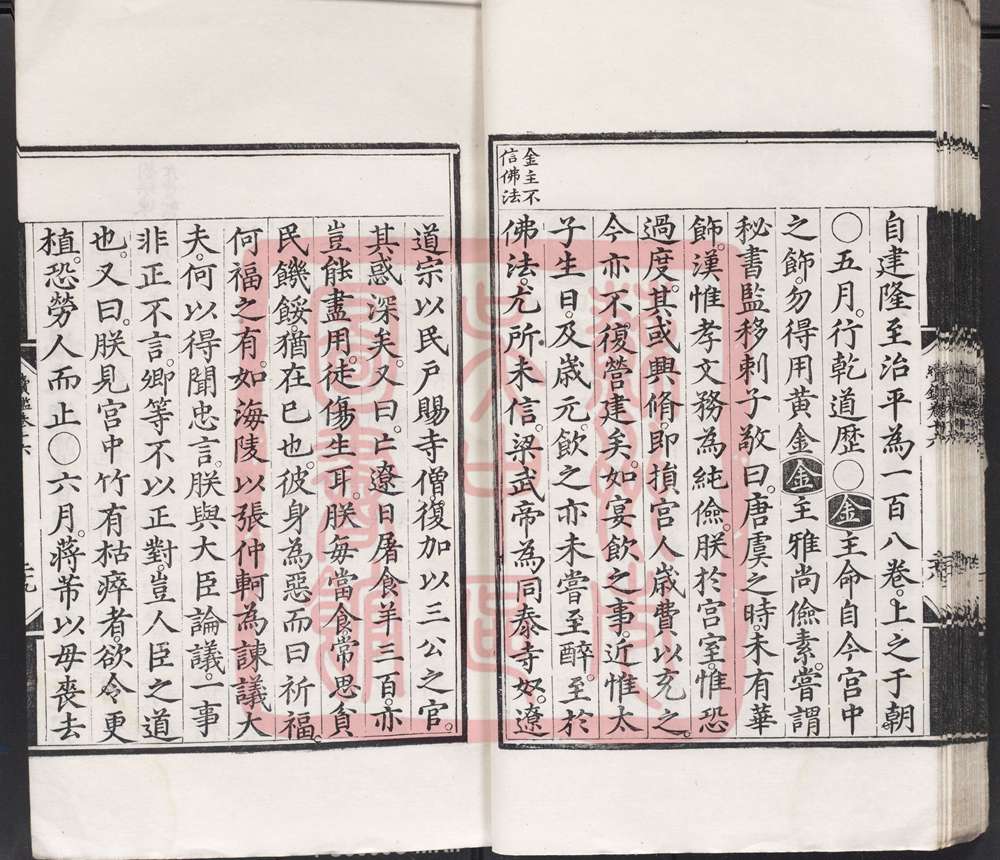 金主不
信佛法
自建隆至治平為一百八卷上之于朝
○五月行乾道歷○金主命自今宮中
之飾勿得用黃金金主雅尚儉素嘗謂
秘書監移剌子敬曰唐虞之時未有華
飾漢惟孝文務為純儉朕於宮室惟恐
過度其或興脩即損宮人歲費以充之
今亦不復營建矣如宴飲之事近惟太
子生日及歲元飲之亦未嘗至醉至於
佛法尤所未信梁武帝為同泰寺奴遼
道宗以民戶賜寺僧復加以三公之官
其惑深矣又曰亡遼日屠食羊三百亦
豈能盡用徒傷生耳朕每當食常思貧
民饑餒猶在己也彼身為惡而曰祈福
何福之有如海陵以張仲軻為諫議大
夫何以得聞忠言朕與大臣論議一事
非正不言卿等不以正對豈人臣之道
也又曰朕見宮中竹有枯瘁者欲令更
植恐勞人而止○六月蔣芾以母喪去